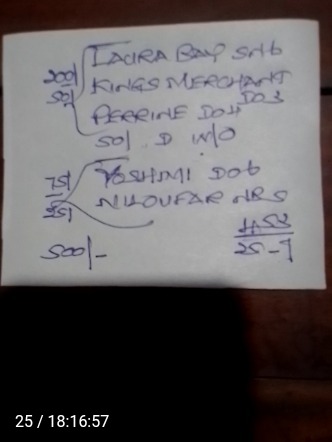 LAURA BAY SNB
200/ KINGS MERCHANT
50/ DO3
PERRINE DO4
50/ D W/O
75/ YOSHIMI DO6
25/ NILOUFAR NRS
500/- 4.53
25-7
25 / 18:16:57